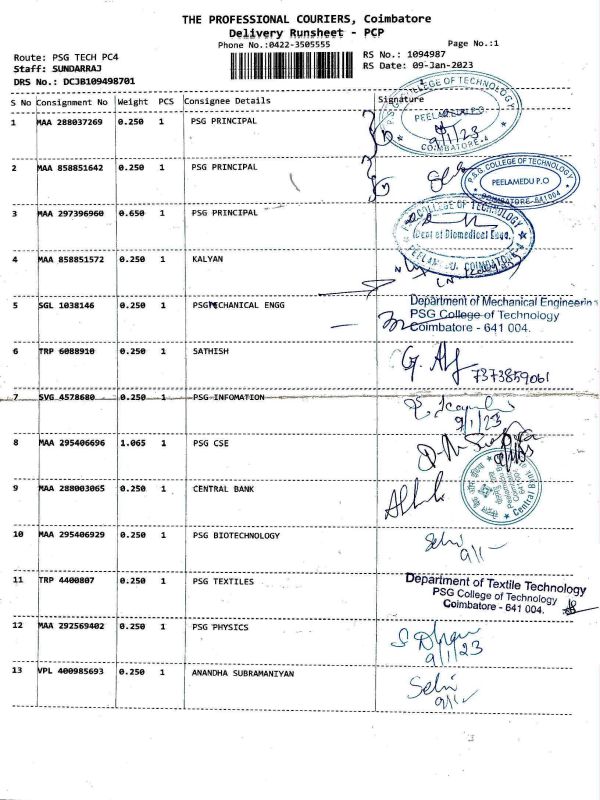 THE PROFESSIONAL COURIERS, Coimbatore
Delivery Runsheet - PCP
Phone No.:0422-3505555
Page No.:1
Route: PSG TECH PC4
RS No.: 1094987
Staff: SUNDARRAJ
RS Date: 09-Jan-2023
DRS No.: DCJB109498701
S No Consignment No Weight PCS Consignee Details Signature
1 MAA 288037269 0.250 1 PSG PRINCIPAL
COLLEGE OF TECHNOLOGY
PEELAMEDU P.O
9/1/23
COIMBATORE-4
2 MAA 858851642 0.250 1 PSG PRINCIPAL
P.S.G. COLLEGE OF TECHNOLOGY
PEELAMEDU P.O
COIMBATORE-641004
3 MAA 297396960 0.650 1 PSG PRINCIPAL
COLLEGE OF TECHNOLOGY
Dept of Biomedical Engg.
PEELAMEDU, COIMBATORE-4
4 MAA 858851572 0.250 1 KALYAN
5 SGL 1038146 0.250 1 PSGMECHANICAL ENGG
Department of Mechanical Engineerin
PSG College of Technology
Coimbatore - 641 004.
6 TRP 6088910 0.250 1 SATHISH
7373859061
7 SVG 4578680 0.250 1 PSG INFOMATION
9/1/23
8 MAA 295406696 1.065 1 PSG CSE
9 MAA 288003065 0.250 1 CENTRAL BANK
Central B
10 MAA 295406929 0.250 1 PSG BIOTECHNOLOGY
Selvi
9/1
11 TRP 4400807 0.250 1 PSG TEXTILES
Department of Textile Technology
PSG College of Technology
Coimbatore - 641 004.
12 MAA 292569402 0.250 1 PSG PHYSICS
9/1/23
13 VPL 400985693 0.250 1 ANANDHA SUBRAMANIYAN
Selvi
9/1